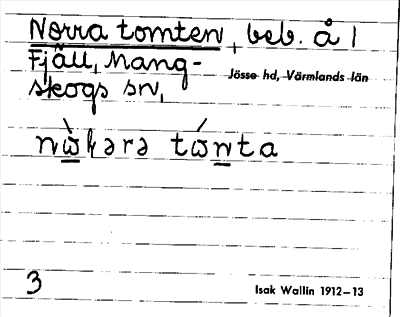 Norra tomten, beb. å 1
Fjäll, Mang-
skogs sn,
Jösse hd, Värmlands län
3
Isak Wallin 1912–13